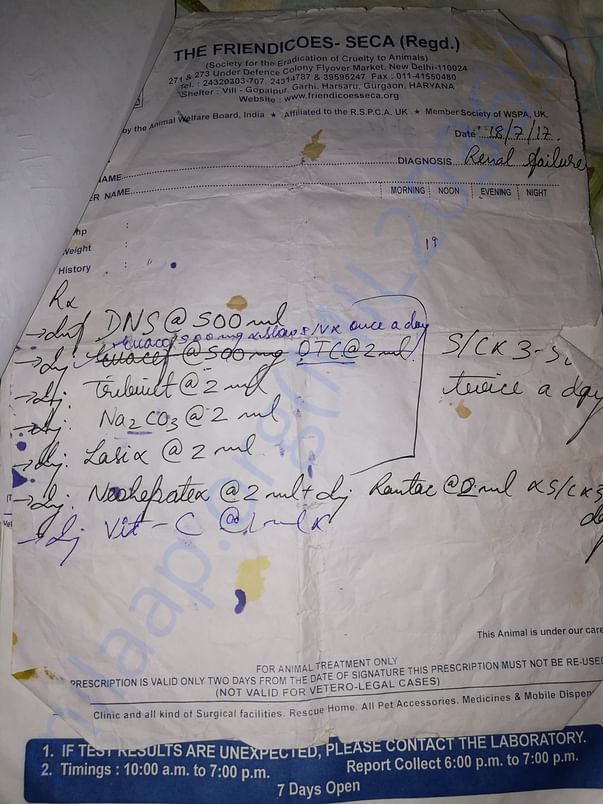 THE FRIENDICOES- SECA (Regd.)
(Society for the Eradication of Cruelty to Animals)
271 & 273 Under Defence Colony Flyover Market, New Delhi-110024
Tel. : 24320303-707, 24314787 & 39595247 Fax : 011-41550480
Shelter : Vill - Gopalpur, Garhi, Harsaru, Gurgaon, HARYANA
Website : www.friendicoesseca.org
by the Animal Welfare Board, India ★ Affiliated to the R.S.P.C.A. UK ★ Member Society of WSPA, UK.
Date 18/7/17
NAME DIAGNOSIS Renal failure
ER NAME MORNING NOON EVENING NIGHT
mp :
Weight :
History :
19
Rx
→ Inj DNS @ 500 ml
500 mg I/V x once a day
→ Inj @ 500 mg OTC @ 2 ml
S/C x 3-5
twice a day
→ Inj: Tribivet @ 2 ml
→ Inj: Na2CO3 @ 2 ml
→ Inj: Lasix @ 2 ml
→ Inj: Neohepatex @ 2 ml + Inj Rantac @ 2 ml x S/C x 3
→ Inj Vit - C @ 1 ml x
This Animal is under our care
FOR ANIMAL TREATMENT ONLY
PRESCRIPTION IS VALID ONLY TWO DAYS FROM THE DATE OF SIGNATURE THIS PRESCRIPTION MUST NOT BE RE-USED
(NOT VALID FOR VETERO-LEGAL CASES)
Clinic and all kind of Surgical facilities. Rescue Home. All Pet Accessories. Medicines & Mobile Dispen
1. IF TEST RESULTS ARE UNEXPECTED, PLEASE CONTACT THE LABORATORY.
2. Timings : 10:00 a.m. to 7:00 p.m. Report Collect 6:00 p.m. to 7:00 p.m.
7 Days Open